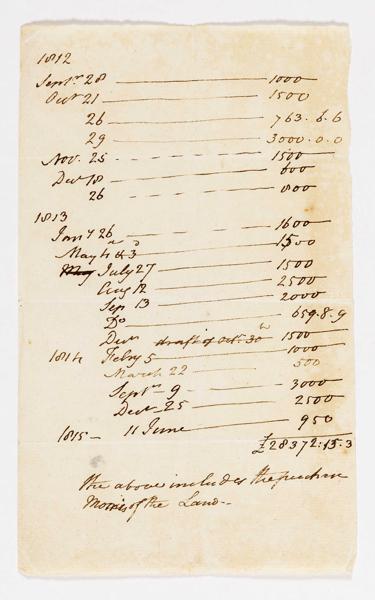 1812
Septr 28 — 1000
Octr 21 — 1500
26 — 763.6.6
29 — 3000.0.0
Nov. 25 — 1500
Decr 18 — 600
26 — 800
1813
Jany 26 — 1600
May 4 & 3 — 1500
May July 27 — 1500
Aug 12 — 2500
Sep 13 — 2000
Do — 659.8.9
Decr draft of Octr. 30 — 1500
1814 Febry 5 — 1000
March 22 — 500
Septr 9 — 3000
Decr 25 — 2500
1815 — 11 June — 950
£28372.15.3
the above includes the purchase
Monies of the Land —